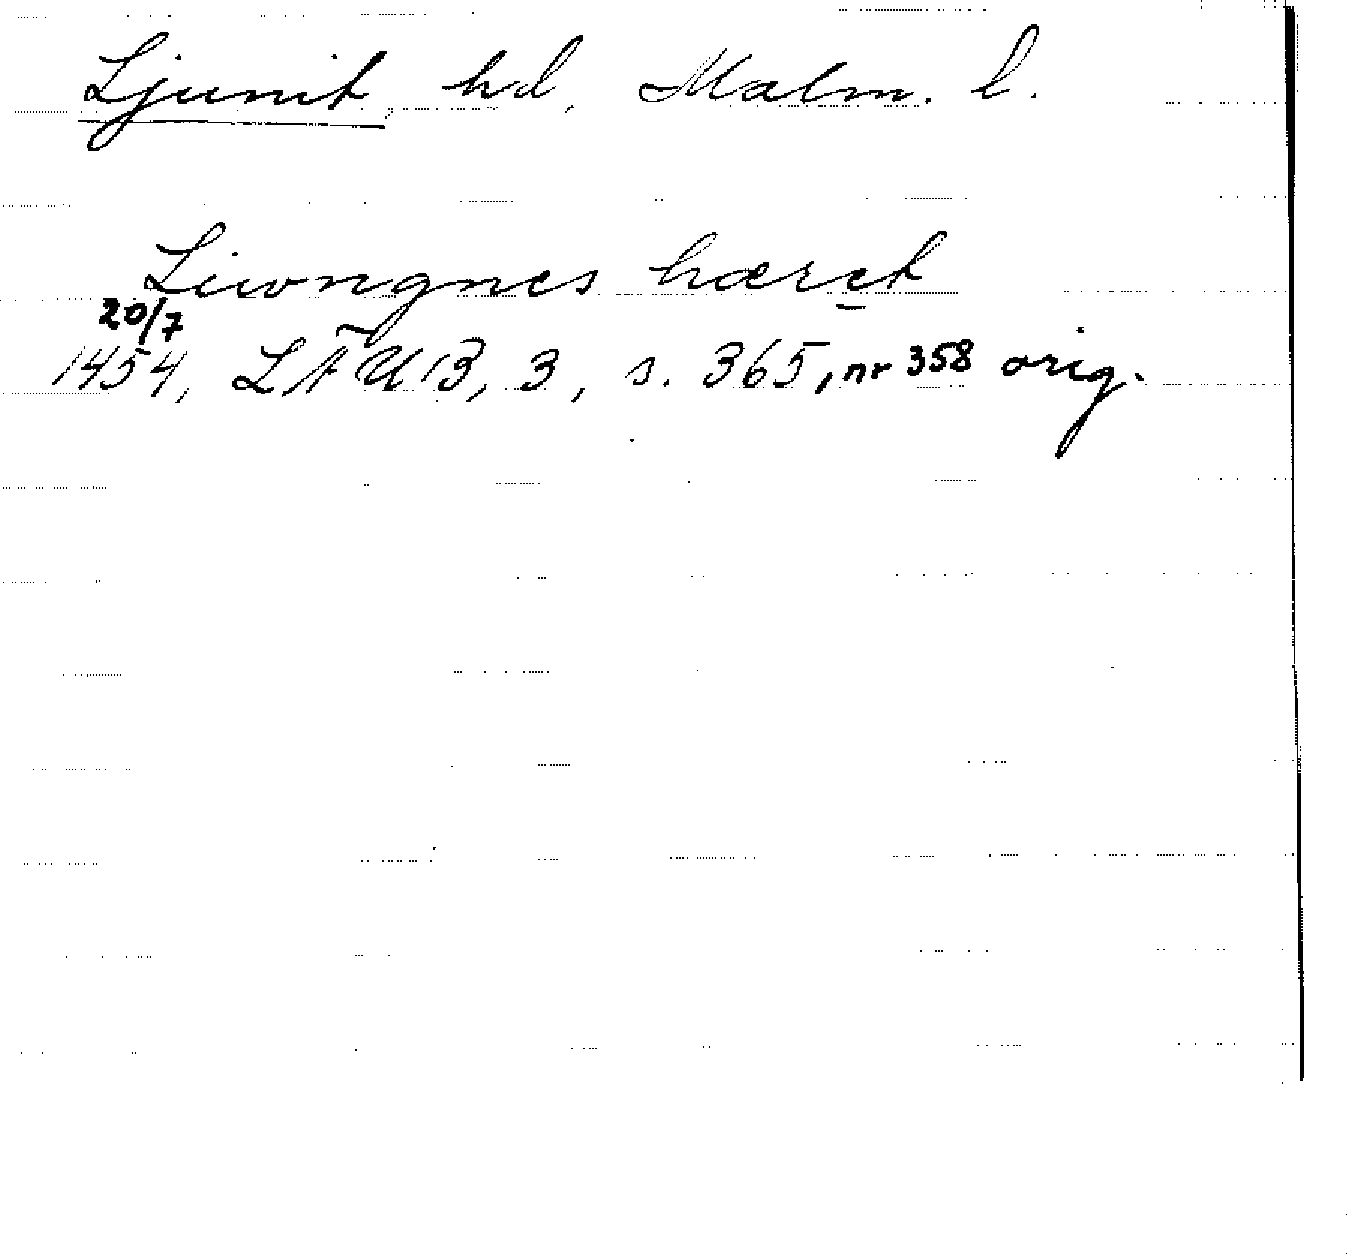 Ljunit hd, Malm. l.
Liwongnes hæret
20/7
1454, LÄUB, 3, s. 365, nr 358 orig.